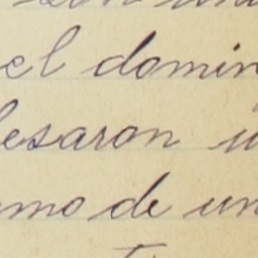 el domin
esaron u
mo de un